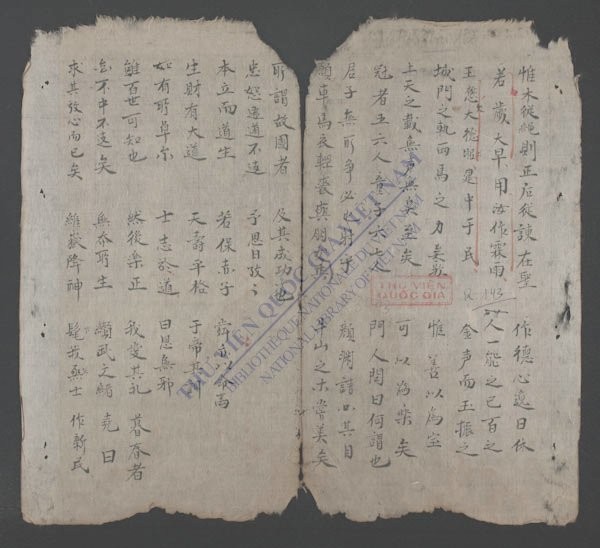 惟木從繩則正后從諫在聖 作德心逸日休
若歲大旱用汝作霖雨 人一能之己百之
王懋大德昭建中于民 金声而玉振之
城門之軌兩馬之力 惟善以為宝
上天之載無声無臭至矣 可以為 矣
冠者五六人童子六七 門人問曰何謂也
君子無所爭必也射乎 顏淵請問其目
願車馬衣輕裘與朋友 牛山之木嘗美矣
所謂故國者 及其成功也
忠恕違道不遠 予思日孜〻
本立而道生 若保赤子
生財有大道 夭壽平格 于帝其
如有所卓尔 士志於道 曰思無邪
雖百世可知也 然後樂正 我愛其礼 暮春者
不中不遠矣 無忝所生 堯曰
求其放心而已矣 維嶽降神 髦 士 作新民
193
THƯ VIỆN
QUỐC GIA
THƯ VIỆN QUỐC GIA VIỆT NAM
BIBLIOTHÈQUE NATIONALE DU VIETNAM
NATIONAL LIBRARY OF VIETNAM